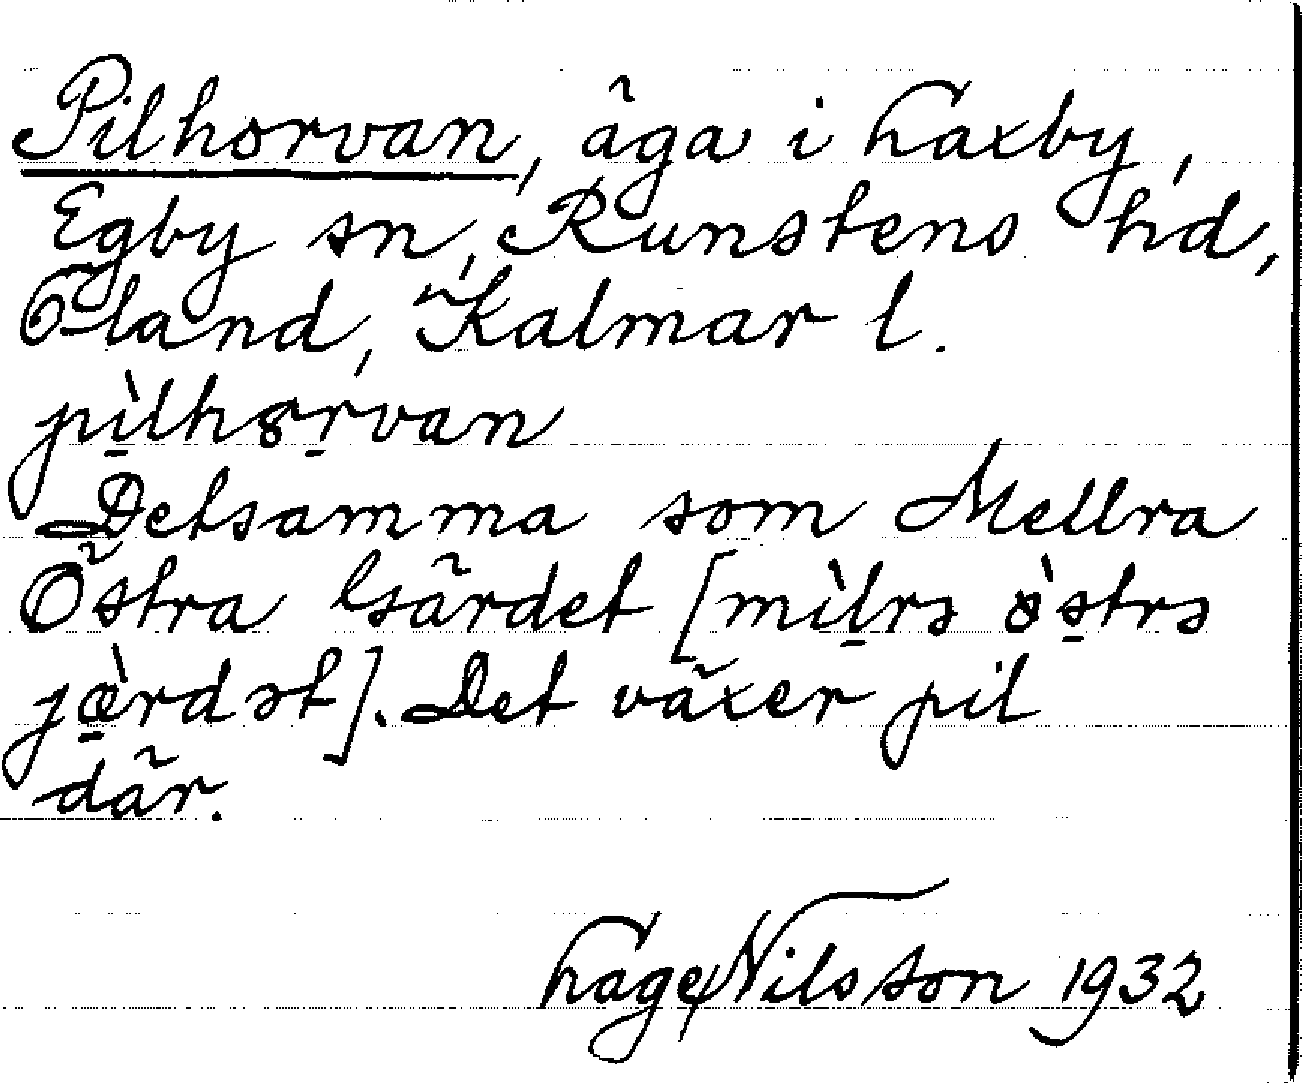 Pilhorvan, äga i Taxby,
Egby sn, Runstens hd,
Öland, Kalmar l.
pì̠lhɵr̠van
Detsamma som Mellra
Östra Gärdet [mìl̠rə ɵ̀s̠trə
jæ̠̀rdət]. Det växer pil
där.
Tage Nilsson 1932